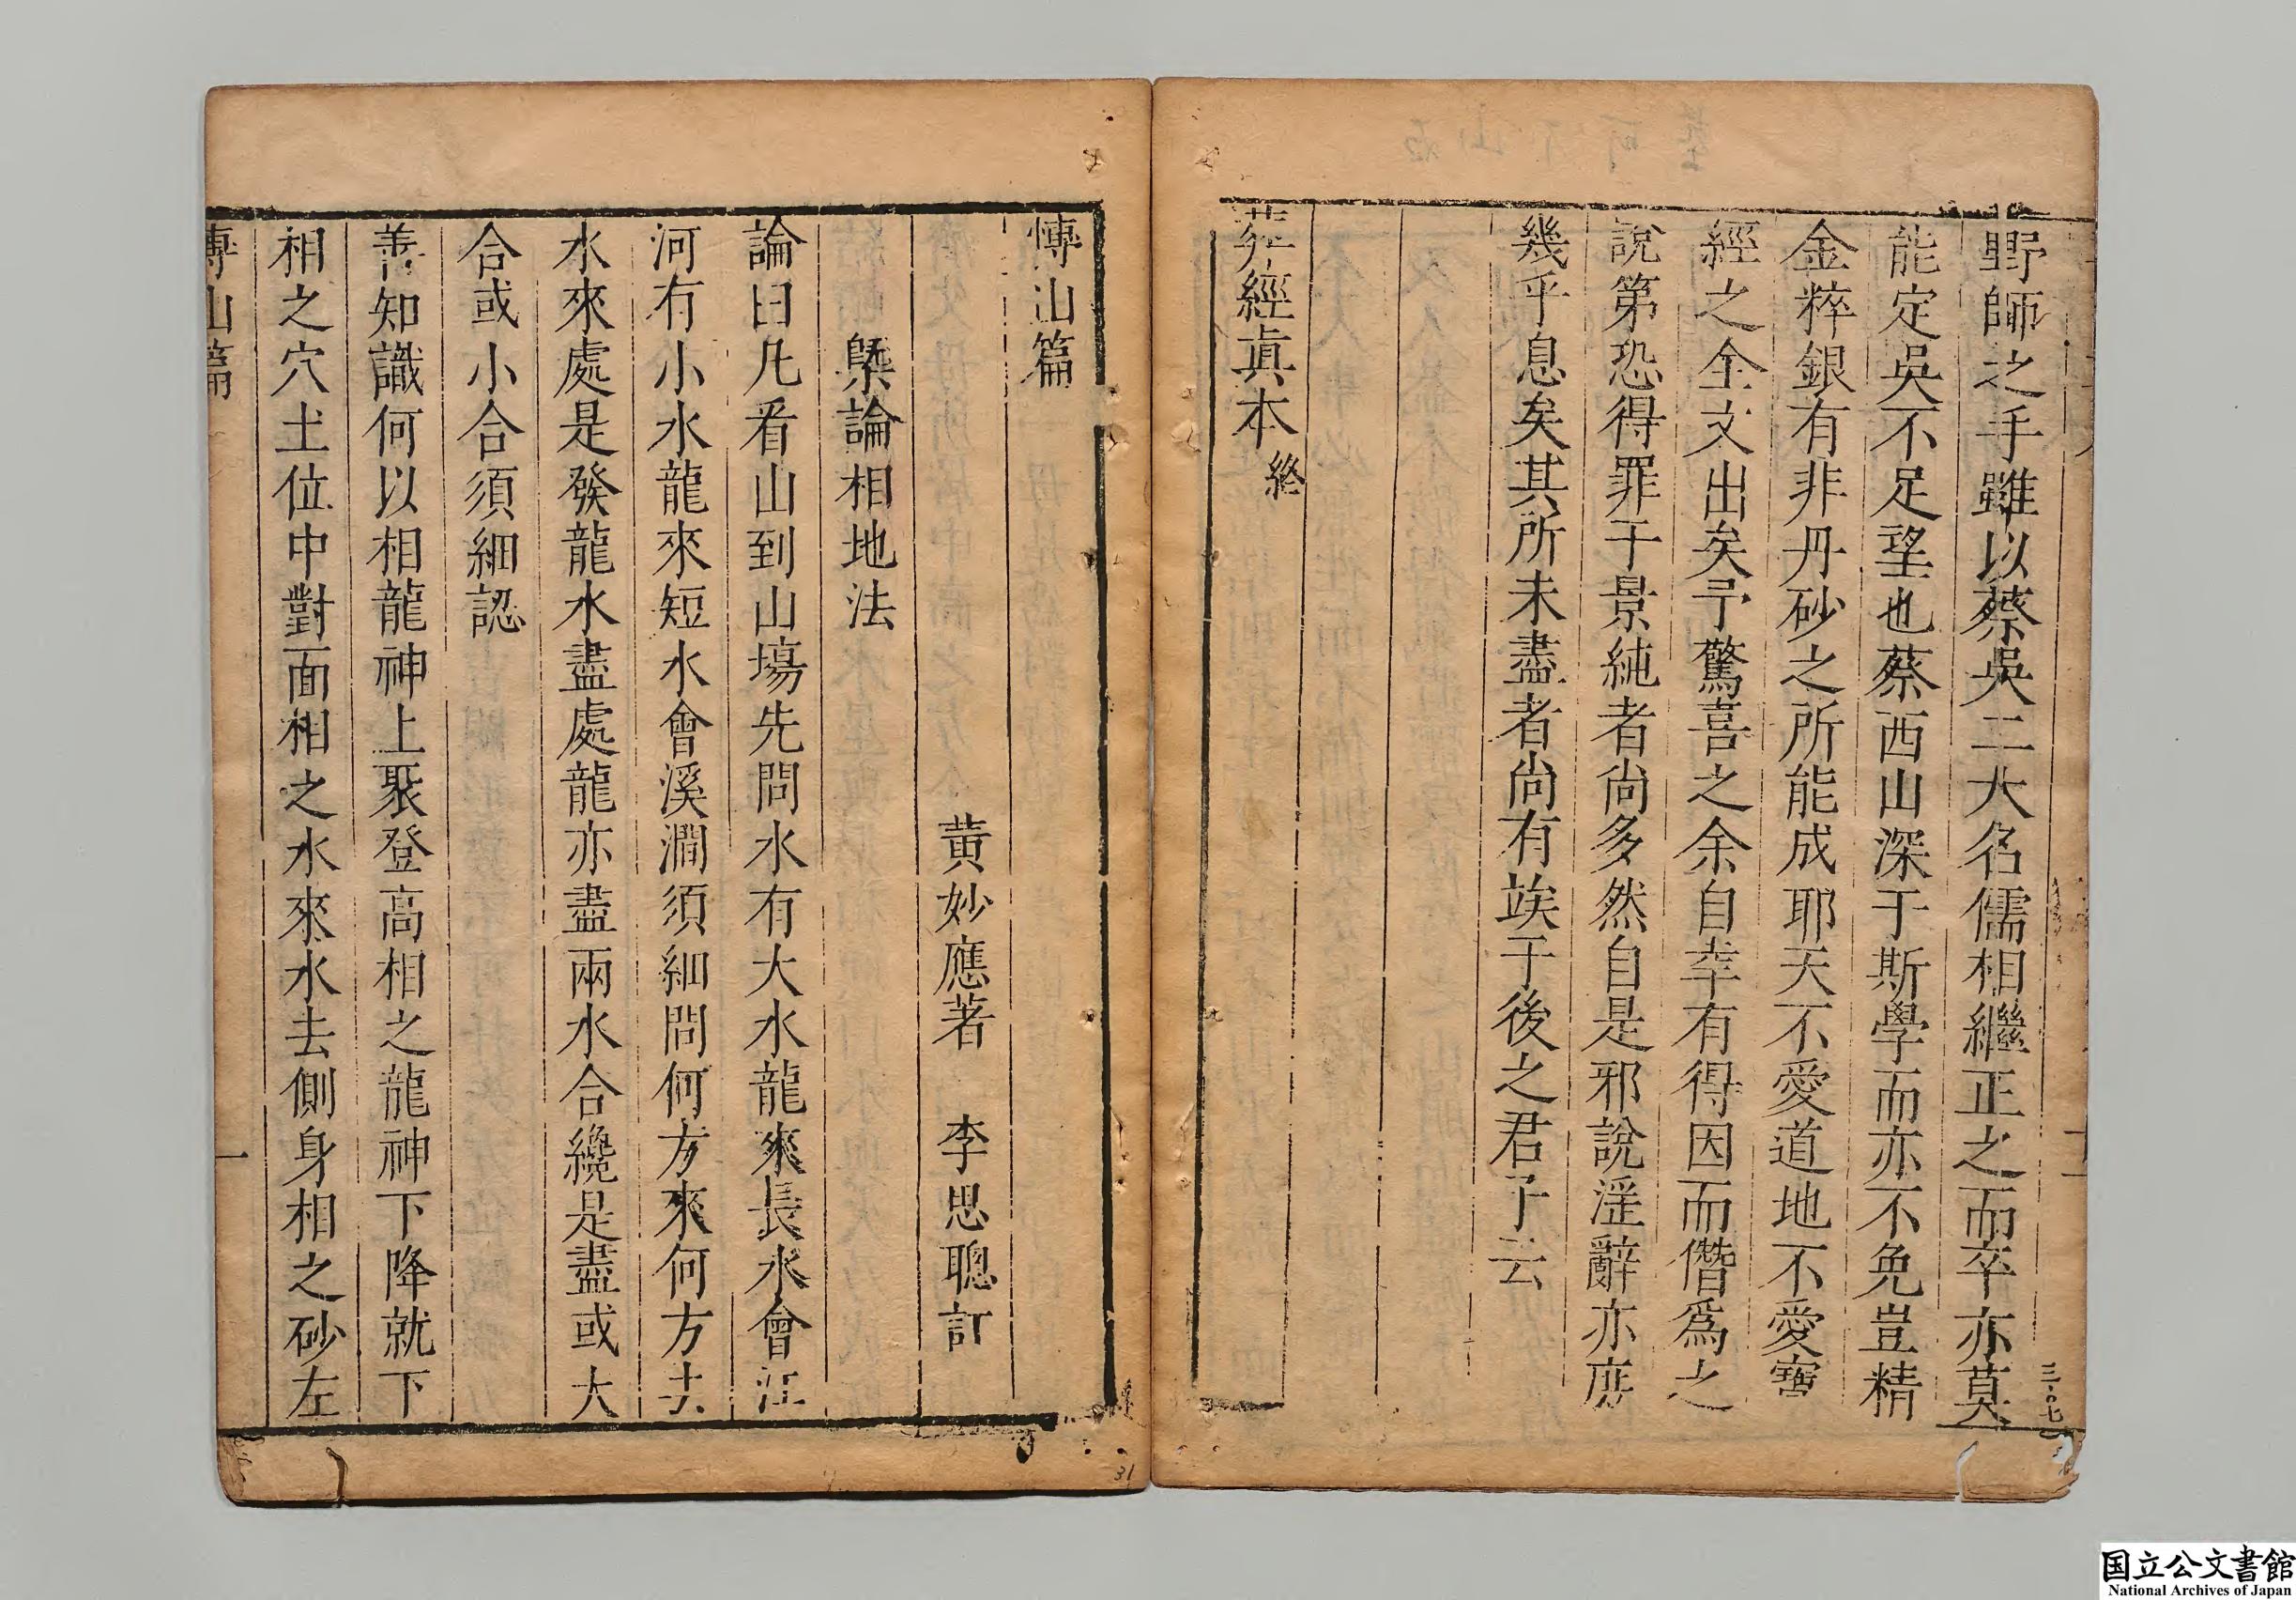 野師之手雖以蔡吳二大名儒相繼正之而卒亦莫
能定吳不足望也蔡西山深于斯學而亦不免豈精
金粹銀有非丹砂之所能成耶天不愛道地不愛寶
經之全文出矣予驚喜之余自幸有得因而僭爲之
說第恐得罪于景純者尚多然自是邪說淫辭亦庶
幾乎息矣其所未盡者尚有竢于後之君子云
葬經眞本終
博山篇
黃妙應著　李思聰訂
槩論相地法
論曰凡看山到山塲先問水有大水龍來長水會江
河有小水龍來短水會溪澗須細問何方來何方去
水來處是發龍水盡處龍亦盡兩水合纔是盡或大
合或小合須細認
善知識何以相龍神上聚登高相之龍神下降就下
相之穴土位中對面相之水來水去側身相之砂左
博山篇
一
31
国立公文書館
National Archives of Japan